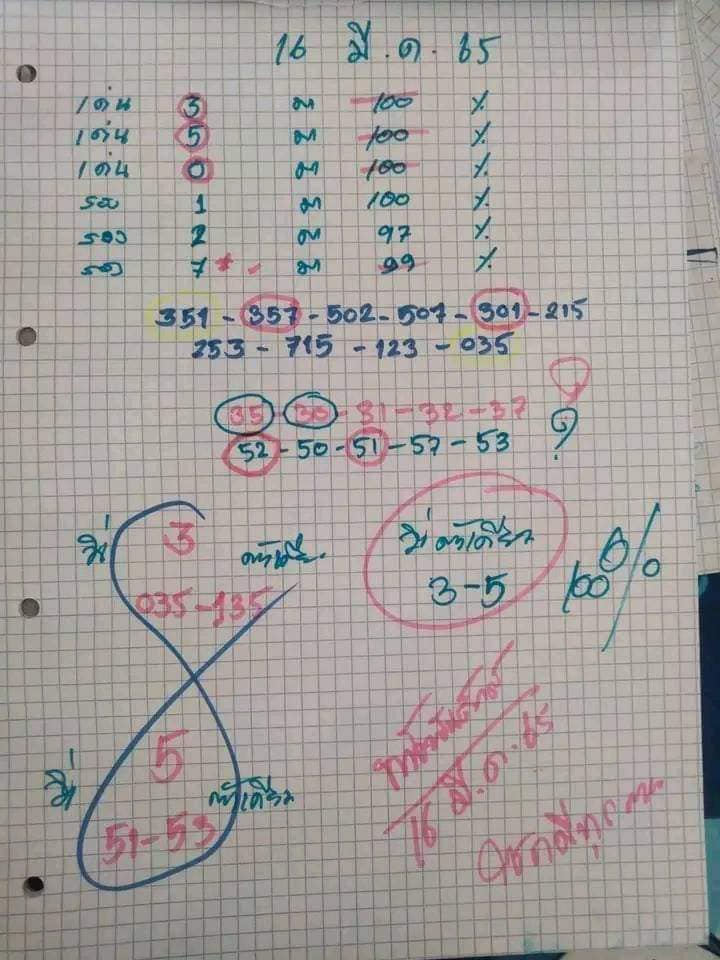 16 มี.ค. 65
เด่น 3 มา 100 %
เด่น 5 มา 100 %
เด่น 0 มา 100 %
รอง 1 มา 100 %
รอง 2 มา 97 %
รอง 7 * - มา 99 %
351 - 357 - 502 - 507 - 301 - 215
253 - 715 - 123 - 035
35 - 30 - 31 - 32 - 37
52 - 50 - 51 - 57 - 53 ?
3
035 - 135
3-5 100%
5
51-53
16 มี.ค. 65
โชคดีทุกคน